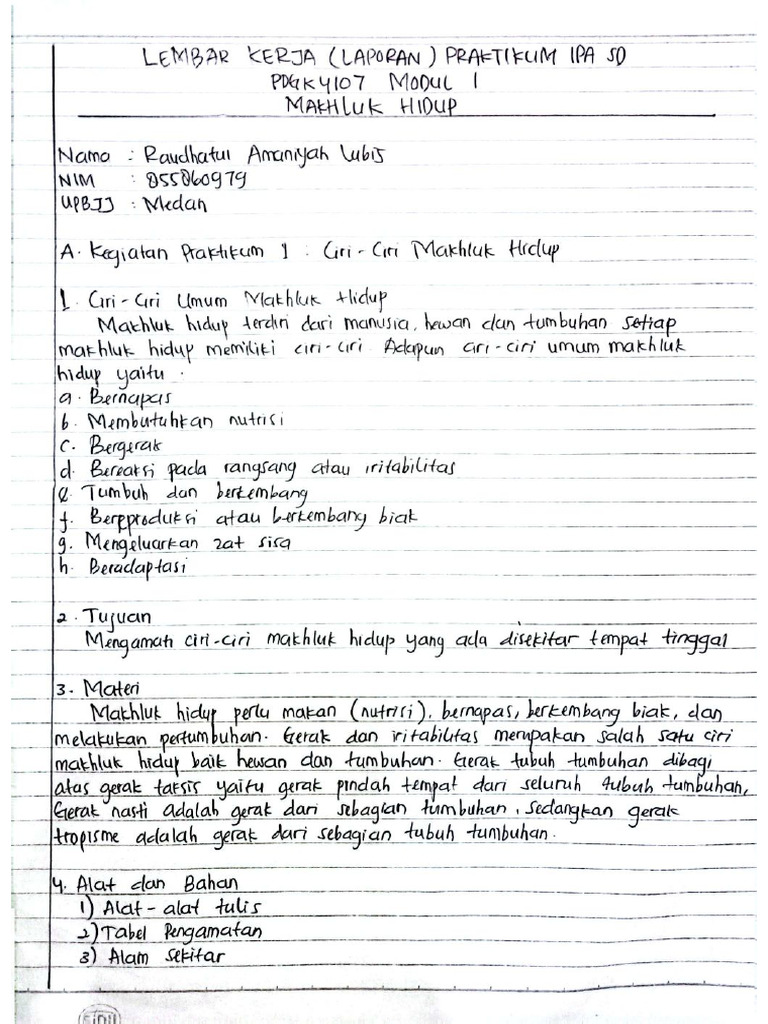 LEMBAR KERJA (LAPORAN) PRAKTIKUM IPA SD
PDGK4107 MODUL 1
MAKHLUK HIDUP
Nama : Raudhatul Amaniyah Lubis
NIM : 855860979
UPBJJ : Medan
A. Kegiatan Praktikum 1 : Ciri-Ciri Makhluk Hidup
1. Ciri-Ciri Umum Makhluk Hidup
Makhluk hidup terdiri dari manusia, hewan dan tumbuhan setiap
makhluk hidup memiliki ciri-ciri. Adapun ciri-ciri umum makhluk
hidup yaitu :
a. Bernapas
b. Membutuhkan nutrisi
c. Bergerak
d. Bereaksi pada rangsang atau iritabilitas
e. Tumbuh dan berkembang
f. Berpproduksi atau berkembang biak
g. Mengeluarkan zat sisa
h. Beradaptasi
2. Tujuan
Mengamati ciri-ciri makhluk hidup yang ada disekitar tempat tinggal
3. Materi
Makhluk hidup perlu makan (nutrisi), bernapas, berkembang biak, dan
melakukan pertumbuhan. Gerak dan iritabilitas merupakan salah satu ciri
makhluk hidup baik hewan dan tumbuhan. Gerak tubuh tumbuhan dibagi
atas gerak taksis yaitu gerak pindah tempat dari seluruh tubuh tumbuhan,
Gerak nasti adalah gerak dari sebagian tumbuhan, sedangkan gerak
tropisme adalah gerak dari sebagian tubuh tumbuhan.
4. Alat dan Bahan
1) Alat-alat tulis
2) Tabel Pengamatan
3) Alam sekitar